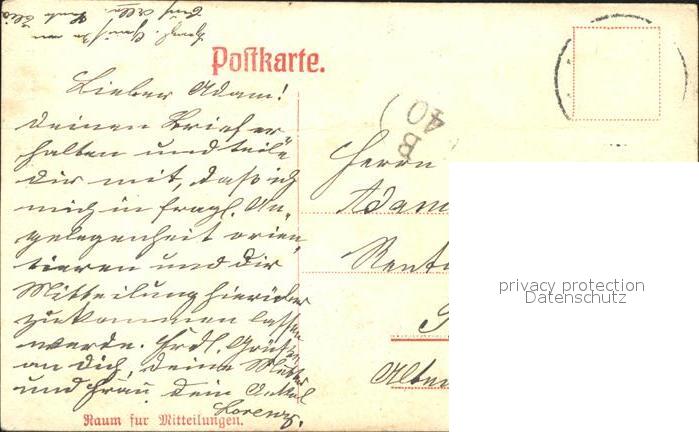 Postkarte.
Lieber Adam!
Deinen Brief er
halten und teile
dir mit, daß ich
mich in fragl. An-
gelegenheit orien-
tieren und Dir
Mitteilung hierüber
zukommen lassen
werde. Hrdl. Grüße
an Dich, deine Mutter
und Frau dein Onkel
Lorenz.
Raum für Mitteilungen.
B
40
Herrn
Adam
Rent
Alten
privacy protection
Datenschutz